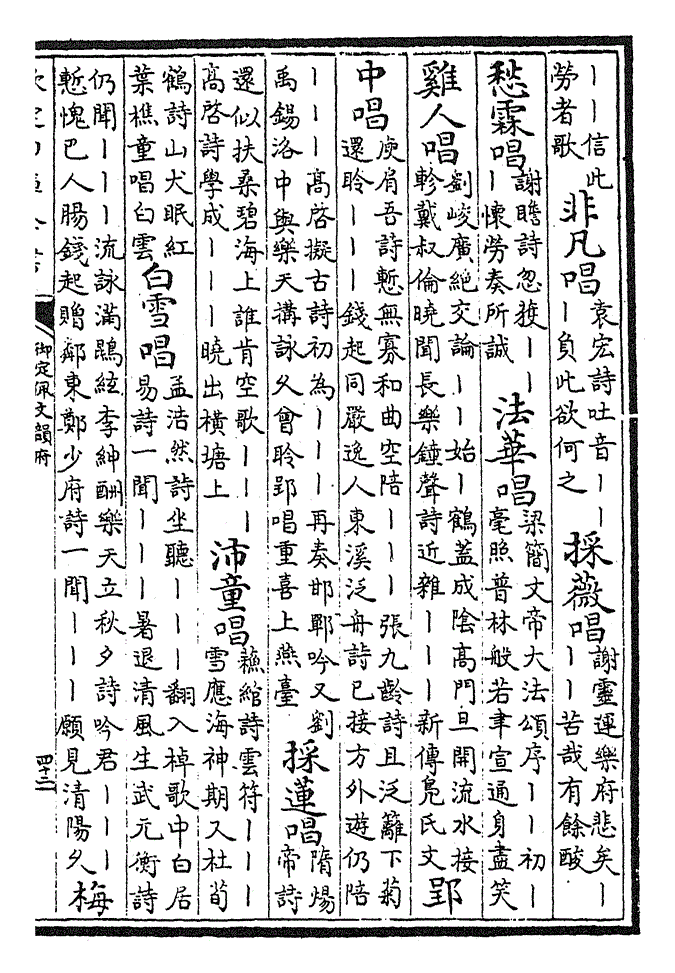 ――信此
勞者歌
非凡唱
袁宏詩吐音――
―負此欲何之
採薇唱
謝靈運樂府悲矣―
――苦哉有餘酸
愁霖唱
謝瞻詩忽獲――
―懷勞奏所誠
法華唱
梁簡文帝大法頌序――初―
毫照普林般若聿宣通身盡笑
雞人唱
劉峻廣絶交論――始―鶴蓋成陰髙門旦開流水接
軫戴叔倫曉聞長樂鐘聲詩近雜―――新傳鳬氏文
郢
中唱
庾肩吾詩慙無寡和曲空陪―――張九齡詩且泛籬下菊
還聆―――錢起同嚴逸人東溪泛舟詩已接方外遊仍陪
―――髙啓擬古詩初為―――再奏邯鄲吟又劉
禹錫洛中與樂天講詠久㑹聆郢唱重喜上燕臺
採蓮唱
隋煬
帝詩
還似扶桑碧海上誰肯空歌―――
髙啓詩學成―――曉出横塘上
沛童唱
蘓綰詩雲符―――
雪應海神期又杜荀
鶴詩山犬眠紅
葉樵童唱白雲
白雪唱
孟浩然詩坐聽―――翻入棹歌中白居
易詩一聞―――暑退清風生武元衡詩
仍聞―――流詠滿鵾絃李紳酬樂天立秋夕詩吟君―――
慙愧巴人腸錢起贈鄰東鄭少府詩一聞―――願見清陽久
梅
御定佩文韻府
四十二